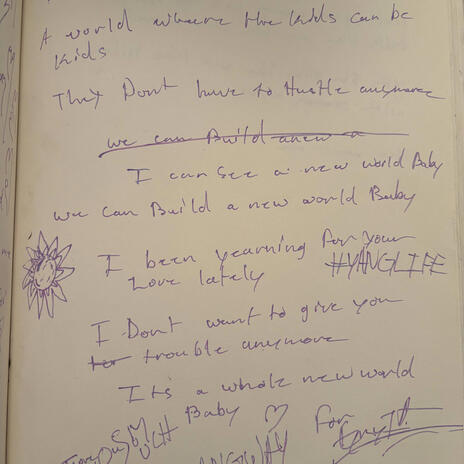 A world where the kids can be
Kids
They Dont have to Hustle anymore
we can Build anew a
I can See a new world Baby
we can Build a new world Baby
I been yearning for your
Love lately
#YANGLIFE
I Dont want to give you
trouble anymore
Its a whole new world
Baby
For